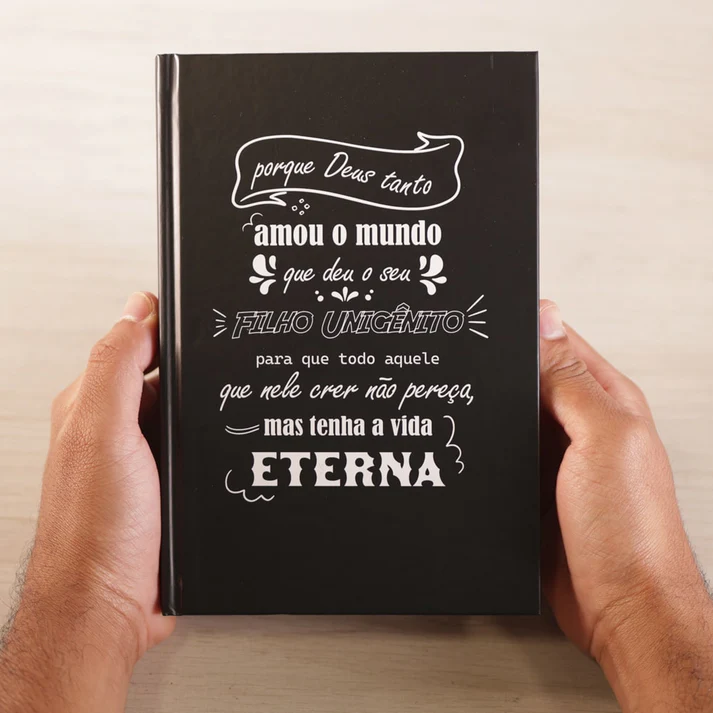 porque Deus tanto
amou o mundo
que deu o seu
FILHO UNIGÊNITO
para que todo aquele
que nele crer não pereça,
mas tenha a vida
ETERNA